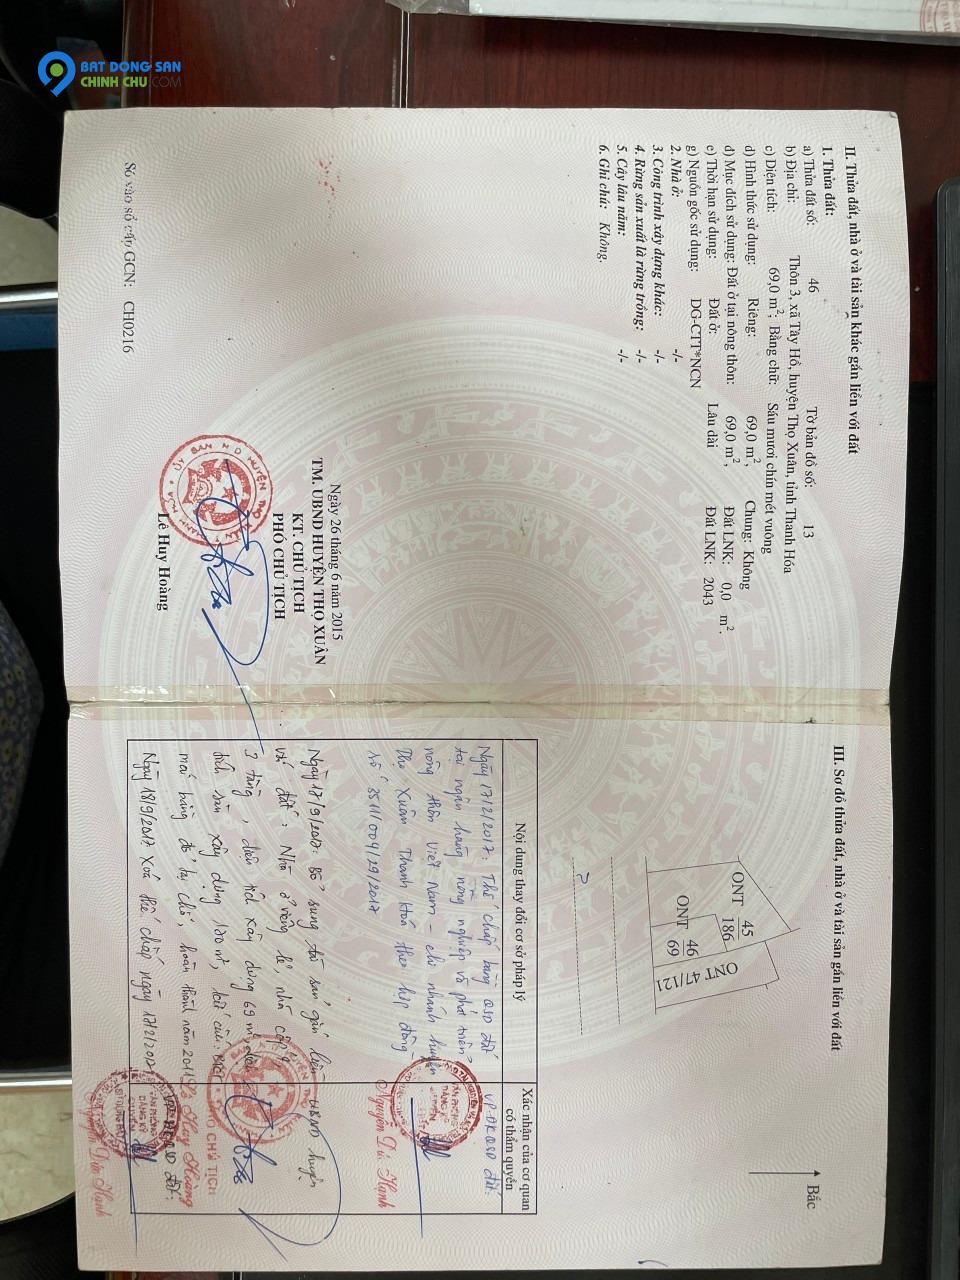 BAT DONG SAN
CHINH CHU.COM
II. Thửa đất, nhà ở và tài sản khác gắn liền với đất
1. Thửa đất:
a) Thửa đất số: 46 Tờ bản đồ số: 13
b) Địa chỉ: Thôn 3, xã Tây Hồ, huyện Thọ Xuân, tỉnh Thanh Hóa
c) Diện tích: 69,0 m², Bằng chữ: Sáu mươi chín mét vuông
d) Hình thức sử dụng: Riêng: 69,0 m², Chung: Không
đ) Mục đích sử dụng: Đất ở tại nông thôn: 69,0 m², Đất LNK: 0,0 m².
e) Thời hạn sử dụng: Đất ở: Lâu dài Đất LNK: 2043
g) Nguồn gốc sử dụng: DG-CTT*NCN
2. Nhà ở: -/-
3. Công trình xây dựng khác: -/-
4. Rừng sản xuất là rừng trồng: -/-
5. Cây lâu năm: -/-
6. Ghi chú: Không.
Ngày 26 tháng 6 năm 2015
TM. UBND HUYỆN THỌ XUÂN
KT. CHỦ TỊCH
PHÓ CHỦ TỊCH
Lê Huy Hoàng
Số vào sổ cấp GCN: CH0216
III. Sơ đồ thửa đất, nhà ở và tài sản gắn liền với đất
Bắc
ONT 45 186
ONT 46 69
ONT 47/121
Nội dung thay đổi cơ sở pháp lý
Xác nhận của cơ quan có thẩm quyền
Ngày 17/2/2017. Thế chấp bằng QSD đất
tại ngân hàng nông nghiệp và phát triển
nông thôn Việt Nam - chi nhánh huyện
Thọ Xuân Thanh Hoá theo hợp đồng
số 3511/009/29/2017
VP.ĐKQSD đất
Nguyễn Thị Hạnh
Ngày 17/9/2017. Bổ sung tài sản gắn liền
với đất. Nhà ở riêng lẻ, nhà cấp
3 tầng, diện tích xây dựng 69 m²,
tích sàn xây dựng 170 m²,
mái bằng đổ tại chỗ, hoàn thành năm 2011
UBND huyện
PHÓ CHỦ TỊCH
Lê Huy Hoàng
Ngày 18/9/2017 Xoá thế chấp ngày 17/2/2017